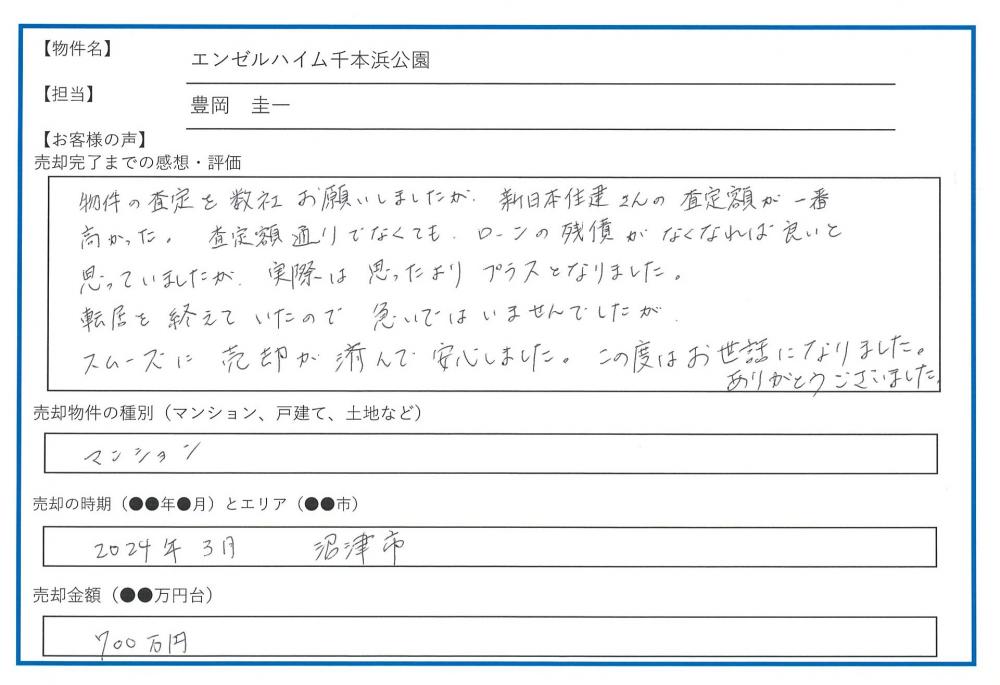 【物件名】
エンゼルハイム千本浜公園
【担当】
豊岡 圭一
【お客様の声】
売却完了までの感想・評価
物件の査定を数社お願いしましたが、新日本住建さんの査定額が一番
高かった。査定額通りでなくても、ローンの残債がなくなれば良いと
思っていましたが、実際は思ったよりプラスとなりました。
転居を終えていたので急いではいませんでしたが、
スムーズに売却が済んで安心しました。この度はお世話になりました。
ありがとうございました。
売却物件の種別（マンション、戸建て、土地など）
マンション
売却の時期（●●年●月）とエリア（●●市）
2024年3月 沼津市
売却金額（●●万円台）
700万円